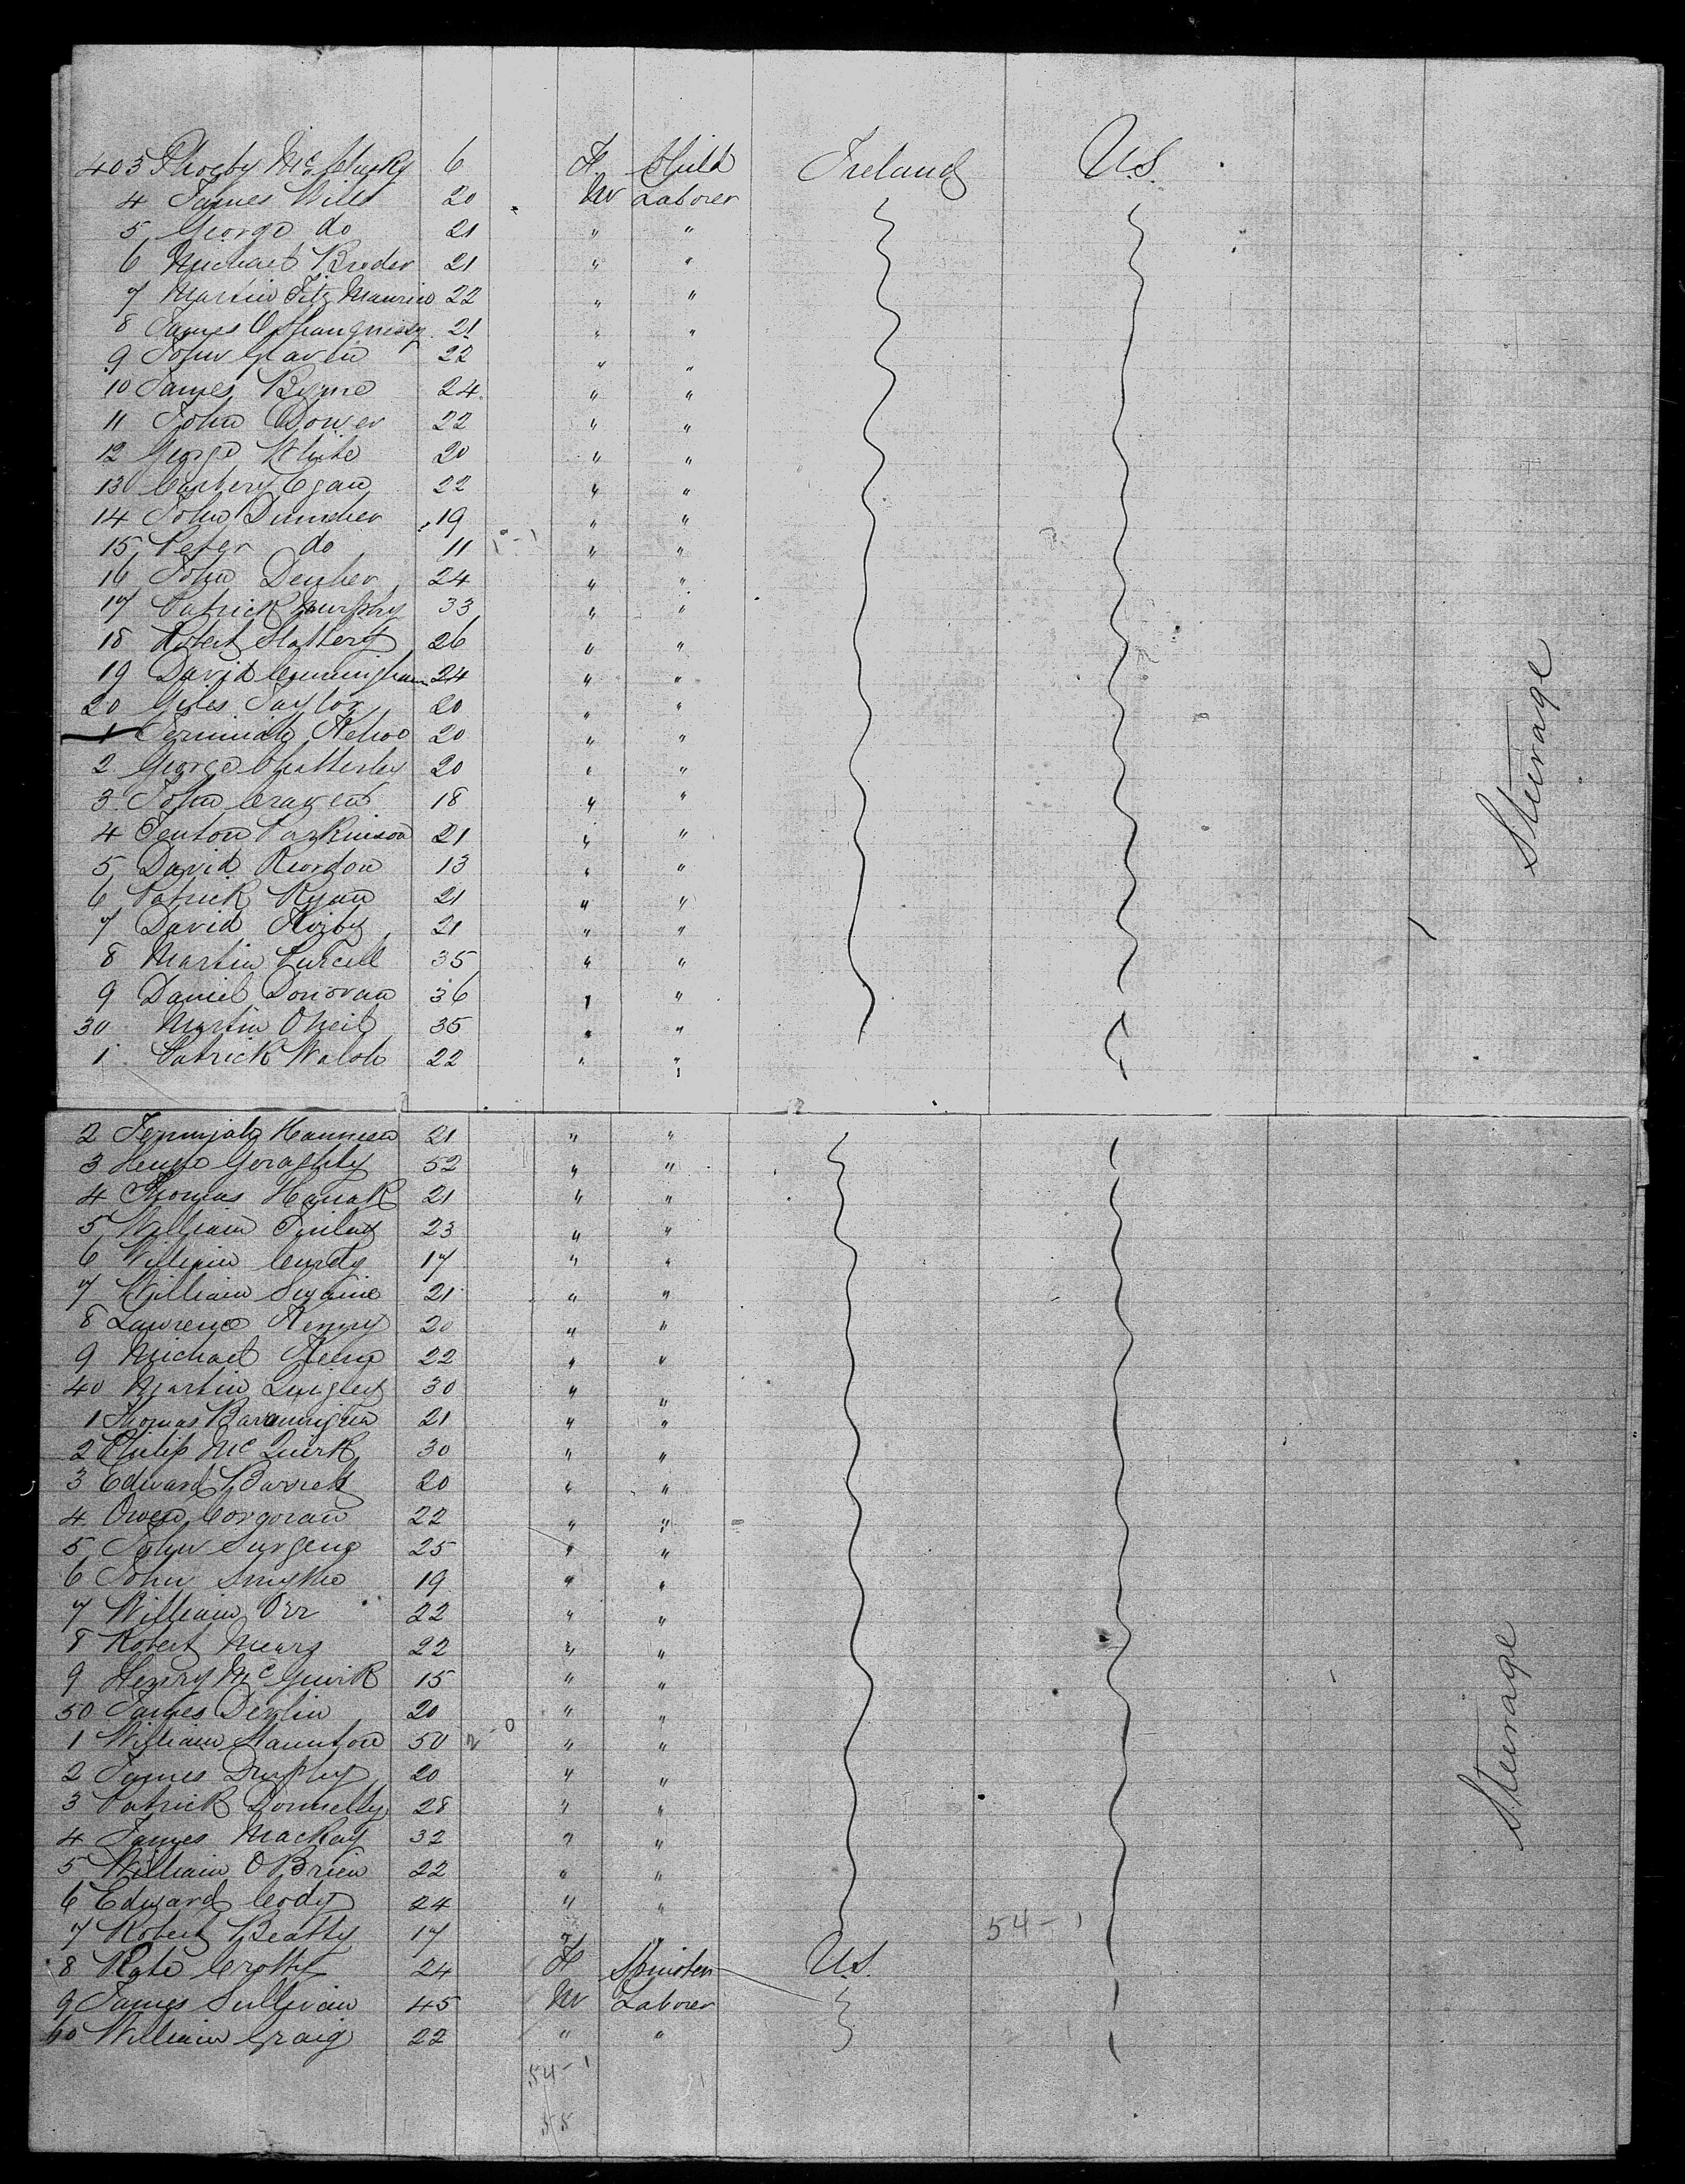 403 Phoeby McClusky 6 F. Child Ireland U.S.
4 James Wills 20 M Laborer
5 George do 21 " "
6 Michael Broder 21 " "
7 Martin Fitz Maurice 22 " "
8 James O Shaugnessy 21 " "
9 John Glavin 22 " "
10 James Byrne 24 " "
11 John Dower 22 " "
12 George White 20 " "
13 Egan 22 " "
14 John 19 " "
15 Peter do 11 " "
16 John 24 " "
17 Patrick Murphy 33 " "
18 Robert Slattery 26 " "
19 David Cunningham 24 " "
20 Giles Taylor 20 " "
1 Jerimiah Kehoe 20 " "
2 George Chatterley 20 " "
3 John Craven 18 " "
4 Fenton Parkinson 21 " "
5 David Reordon 13 " "
6 Patrick Ryan 21 " "
7 David Kirby 21 " "
8 Martin Purcell 35 " "
9 Daniel Donovan 36 " "
30 Martin O Neil 35 " "
1 Patrick Walsh 22 " "
Steerage
2 Jerimiah Hannien 21 " "
3 Geraghty 52 " "
4 Thomas 21 " "
5 William Finlay 23 " "
6 William Curdy 17 " "
7 William Swaine 21 " "
8 Lawrence Kenny 20 " "
9 Michael Keene 22 " "
40 Martin Quigley 30 " "
1 Thomas 21 " "
2 Philip McQuirk 30 " "
3 Edward Barrett 20 " "
4 Owen Corgoran 22 " "
5 John Surgeno 25 " "
6 John Smythe 19 " "
7 William Orr 22 " "
8 Robert Mears 22 " "
9 Henry McGuirk 15 " "
50 James Devlin 20 " "
1 William Staunton 50 " "
2 James Murphy 20 " "
3 Patrick Donnelly 28 " "
4 James Mackay 32 " "
5 William O Brien 22 " "
6 Edward Cody 24 " "
7 Robert Beatty 17 " " 54-1
8 Kate Crotty 24 F Spinster U.S.
9 James Sullivan 45 M Laborer
60 William Craig 22 " "
Steerage
54-1
55